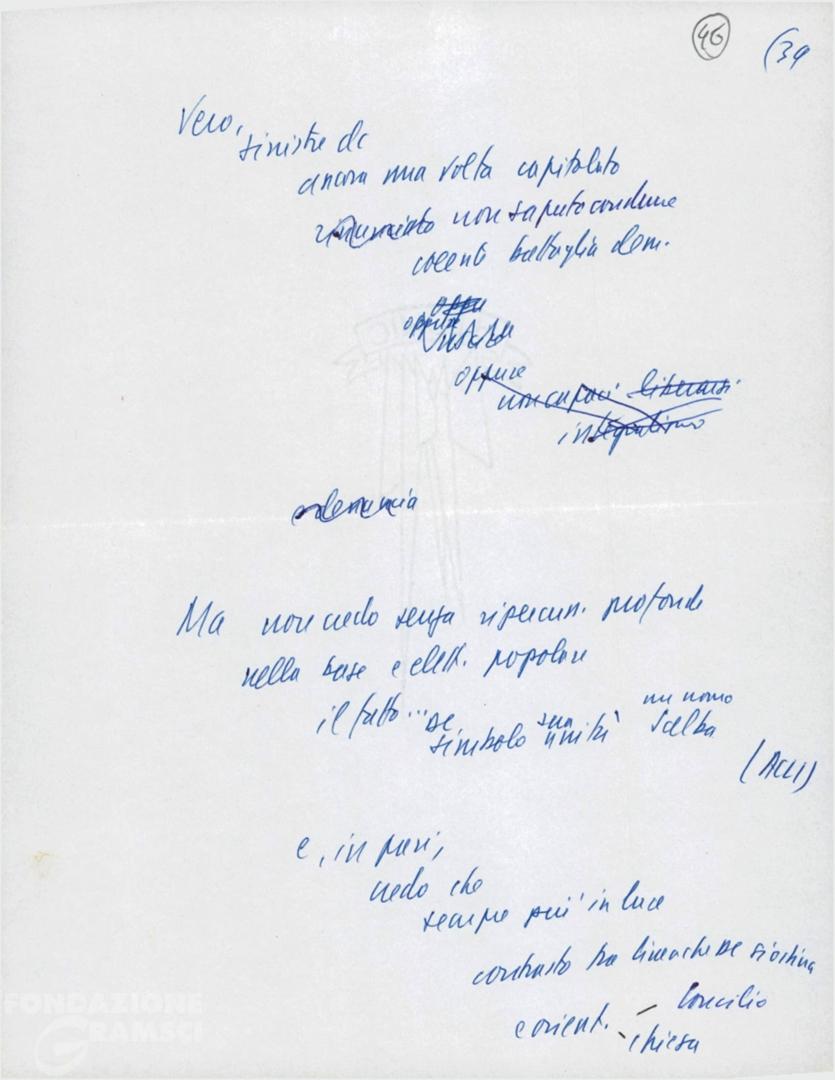 46 (39
Vero,
sinistre dc
ancora una volta capitolato
rinunciato non saputo condurre
coerente battaglia dem.
oppure
oppure
oppure
non capaci liberarsi
integralismo
Ma non credo senza ripercuss. profonde
nella base e elett. popolare
il fatto... DC
un uomo
simbolo sua unità Scelba
(ACLI)
e, in pari,
credo che
sempre più in luce
contrasto tra linea che DC si ostina
e orient. – Concilio
- chiesa
FONDAZIONE
GRAMSCI